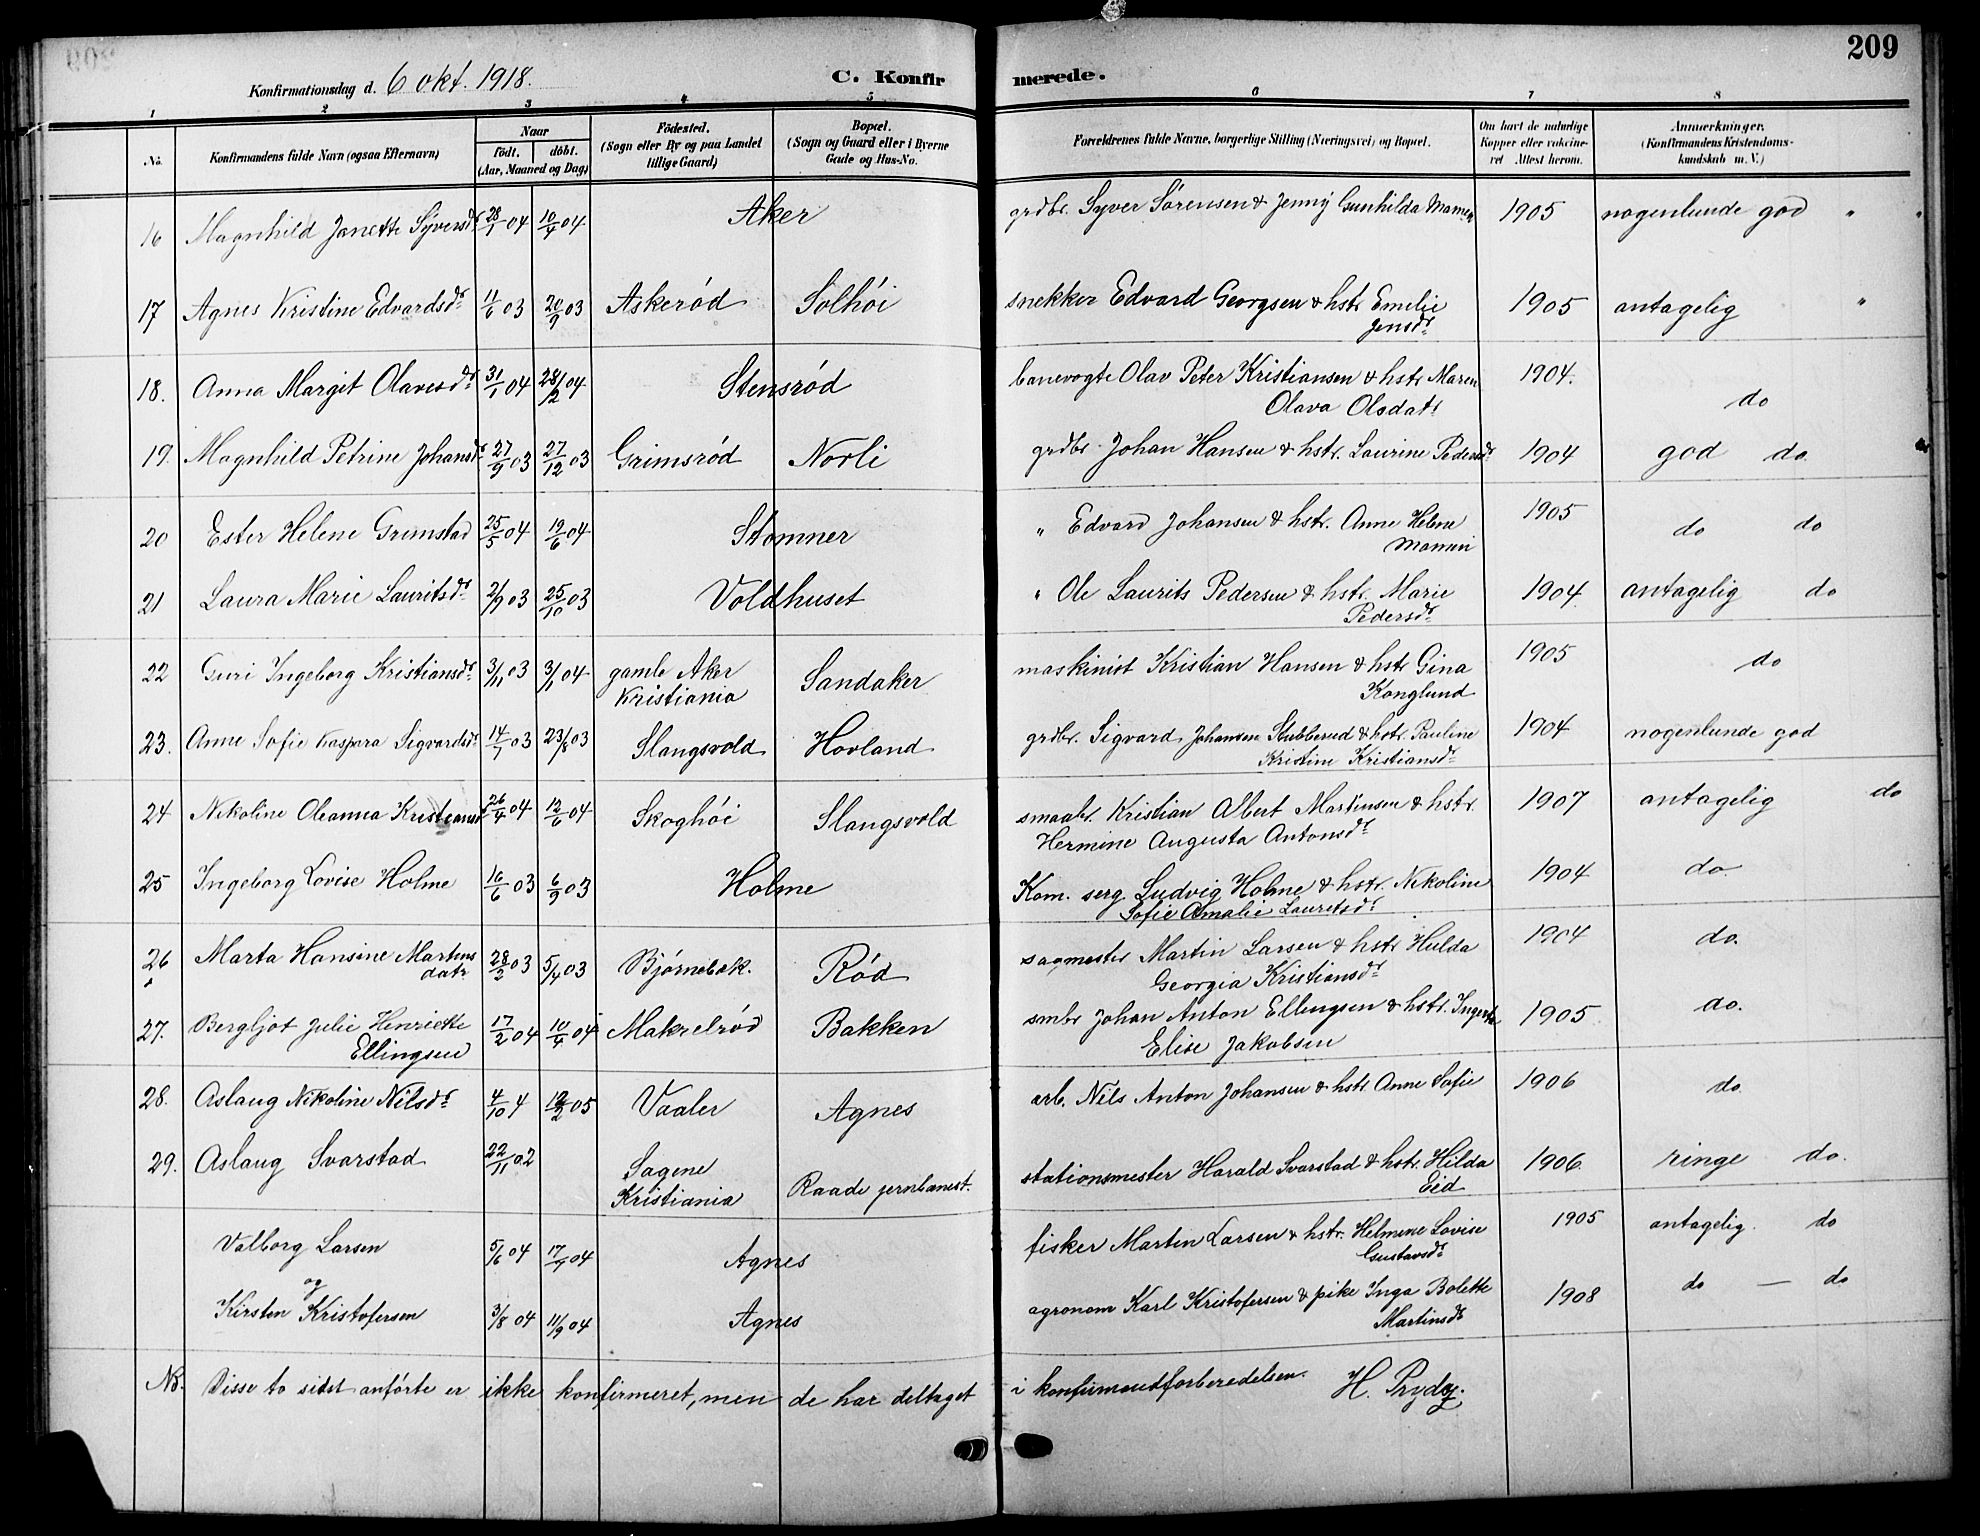 209
Konfirmationsdag d. 6 okt. 1918. C. Konfirmerede.
1 2 3 4 5 6 7 8
No. Konfirmandens fulde Navn (ogsaa Efternavn) Naar født. døbt. (Aar, Maaned og Dag) Fødested. (Sogn eller By og paa Landet tillige Gaard) Bopæl. (Sogn og Gaard eller i Byerne Gade og Hus-No. Forældrenes fulde Navne, borgerlige Stilling (Næringsvei) og Bopæl. Om havt de naturlige Kopper eller vakcineret Attest herom. Anmærkninger. (Konfirmandens Kristendomskundskab m. V.)
16 Magnhild Janette Syversdr 28/1 04 10/4 04 Aker grdbr. Syver Sørensen & Jenny Gunhilda Mamen 1905 nogenlunde god "
17 Agnes Kristine Edvardsdr 11/6 03 20/9 03 Askerød Solhøi snekker Edvard Georgsen & hstr Emilie 1905 antagelig "
Jensdr
18. Anna Margit Olavesdr 31/1 04 28/12 04 Stensrød banevogte Olav Peter Kristiansen & hstr Maren 1904. do
Olava Olsdatr
19. Magnhild Petrine Johansdr 27/9 03 27/12 03 Grimsrød Norli grdbr Johan Hansen & hstr. Laurine Pedersdr 1904 god do
20 Ester Helene Grimstad 25/5 04 19/6 04 Stomner " Edvard Johansen & hstr. Anne Helene 1905 do do
21 Laura Marie Lauritsdr 2/9 03 25/10 03 Voldhuset " Ole Laurits Pedersen & hstr. Marie 1904 antagelig do
Pedersdr
22 Guri Ingeborg Kristiansdr 3/11 03 3/1 04 gamle Aker Kristiania Sandaker maskinist Kristian Hansen & hstr Gina 1905 do
Konglund
23. Anne Sofie Kaspara Sigvardsdr 14/7 03 23/8 03 Slangsvold Hovland grdbr. Sigvard Johansen Stubberud & hstr. Pauline 1904 nogenlunde god
Kristine Kristiansdr
24 Nikoline Oleanna Kristiansdr 26/4 04 12/6 04 Skoghøi Slangsvold smaabr. Kristian Albert Martinsen & hstr. 1907 antagelig do
Hermine Augusta Antonsdr
25 Ingeborg Lovise Holme 16/6 03 6/9 03 Holme Kom. serg. Ludvig Holme & hstr. Nikoline 1904 do.
Sofie Amalie Lauritsdr
26 Marta Hansine Martinsdatr 28/2 03 5/4 03 Bjørnebek. Rød sagmester Martin Larsen & hstr Hulda 1904 do.
Georgia Kristiansdr
27. Bergljot Julie Henriette 17/2 04 10/4 04 Makrelrød Bakken smbr Johan Anton Ellingsen & hstr. 1905 do.
Ellingsen Elise Jakobsen
28. Aslaug Nikoline Nilsdr 4/10 4 /2 05 Vaaler Agnes arb. Nils Anton Johansen & hstr Anne Sofie 1906 do
29. Aslaug Svarstad 22/11 02 Sagene Kristiania Raade jernbanest. stationsmester Harald Svarstad & hstr. Hilda 1906 ringe do.
Eid
Valborg Larsen 5/6 04 17/7 04 Agnes fisker Martin Larsen & hstr. Helmine Lovise 1905 antagelig. do
Gustavsdr
og
Kirsten Kristofersen 3/8 04 11/9 04 Agnes agronom Karl Kristofersen & pike Inga Bolette 1908 do — do
Martinsdr
NB. Disse to sidst anførte er ikke konfirmeret, men de har deltaget i konfirmantforberedelsen. H. Prydz.